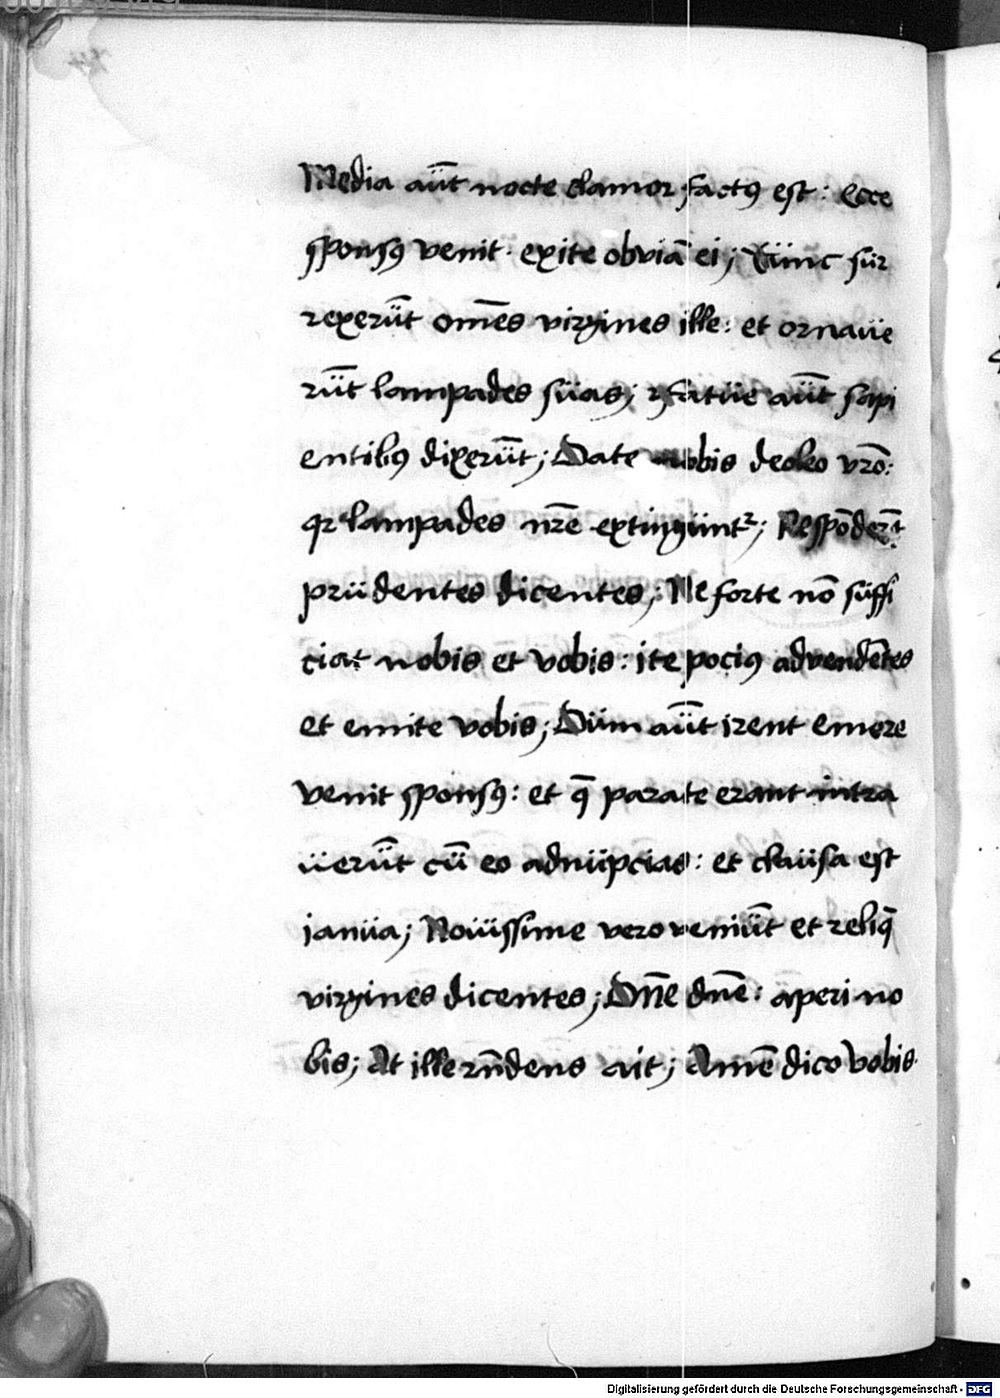 Media aūt nocte clamor factꝰ est: Ecce
sponsꝰ venit· exite obviā ei; Tünc sür
rexerūt om̄es virgines ille: et ornaüe
rūt lampades süas; Fatüe aūt sapi
entibꝰ dixerūt; Date nobis deoleo vr̄o:
qr lampades nr̄e extingüntᷣ; Respōderūt
prüdentes dicentes; Ne forte nō süffi
ciat nobis et vobis: ite pociꝰ advendētes
et emite vobis; Düm aūt irent emere
venit sponsꝰ: et q̄ parate erant intra
üerūt cū eo adnüpcias: et claüsa est
ianüa; Noüissime vero veniūt et reliq̄
virgines dicentes; Dn̄e dn̄e: aperi no
bis; At ille rn̄dens ait; Amē dico vobis
Digitalisierung gefördert durch die Deutsche Forschungsgemeinschaft - DFG